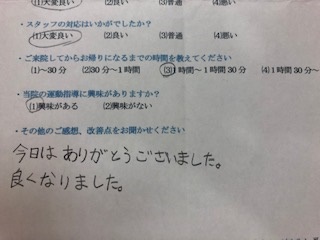 (1)大変良い (2)良い (3)普通 (4)悪い
・スタッフの対応はいかがでしたか？
(1)大変良い (2)良い (3)普通 (4)悪い
・ご来院してからお帰りになるまでの時間を教えてください
(1)～30分 (2)30分～1時間 (3)1時間～1時間30分 (4)1時間30
・当院の運動指導に興味がありますか？
(1)興味がある (2)興味がない
・その他のご感想、改善点をお聞かせください
今日は ありがとうございました。
良くなりました。